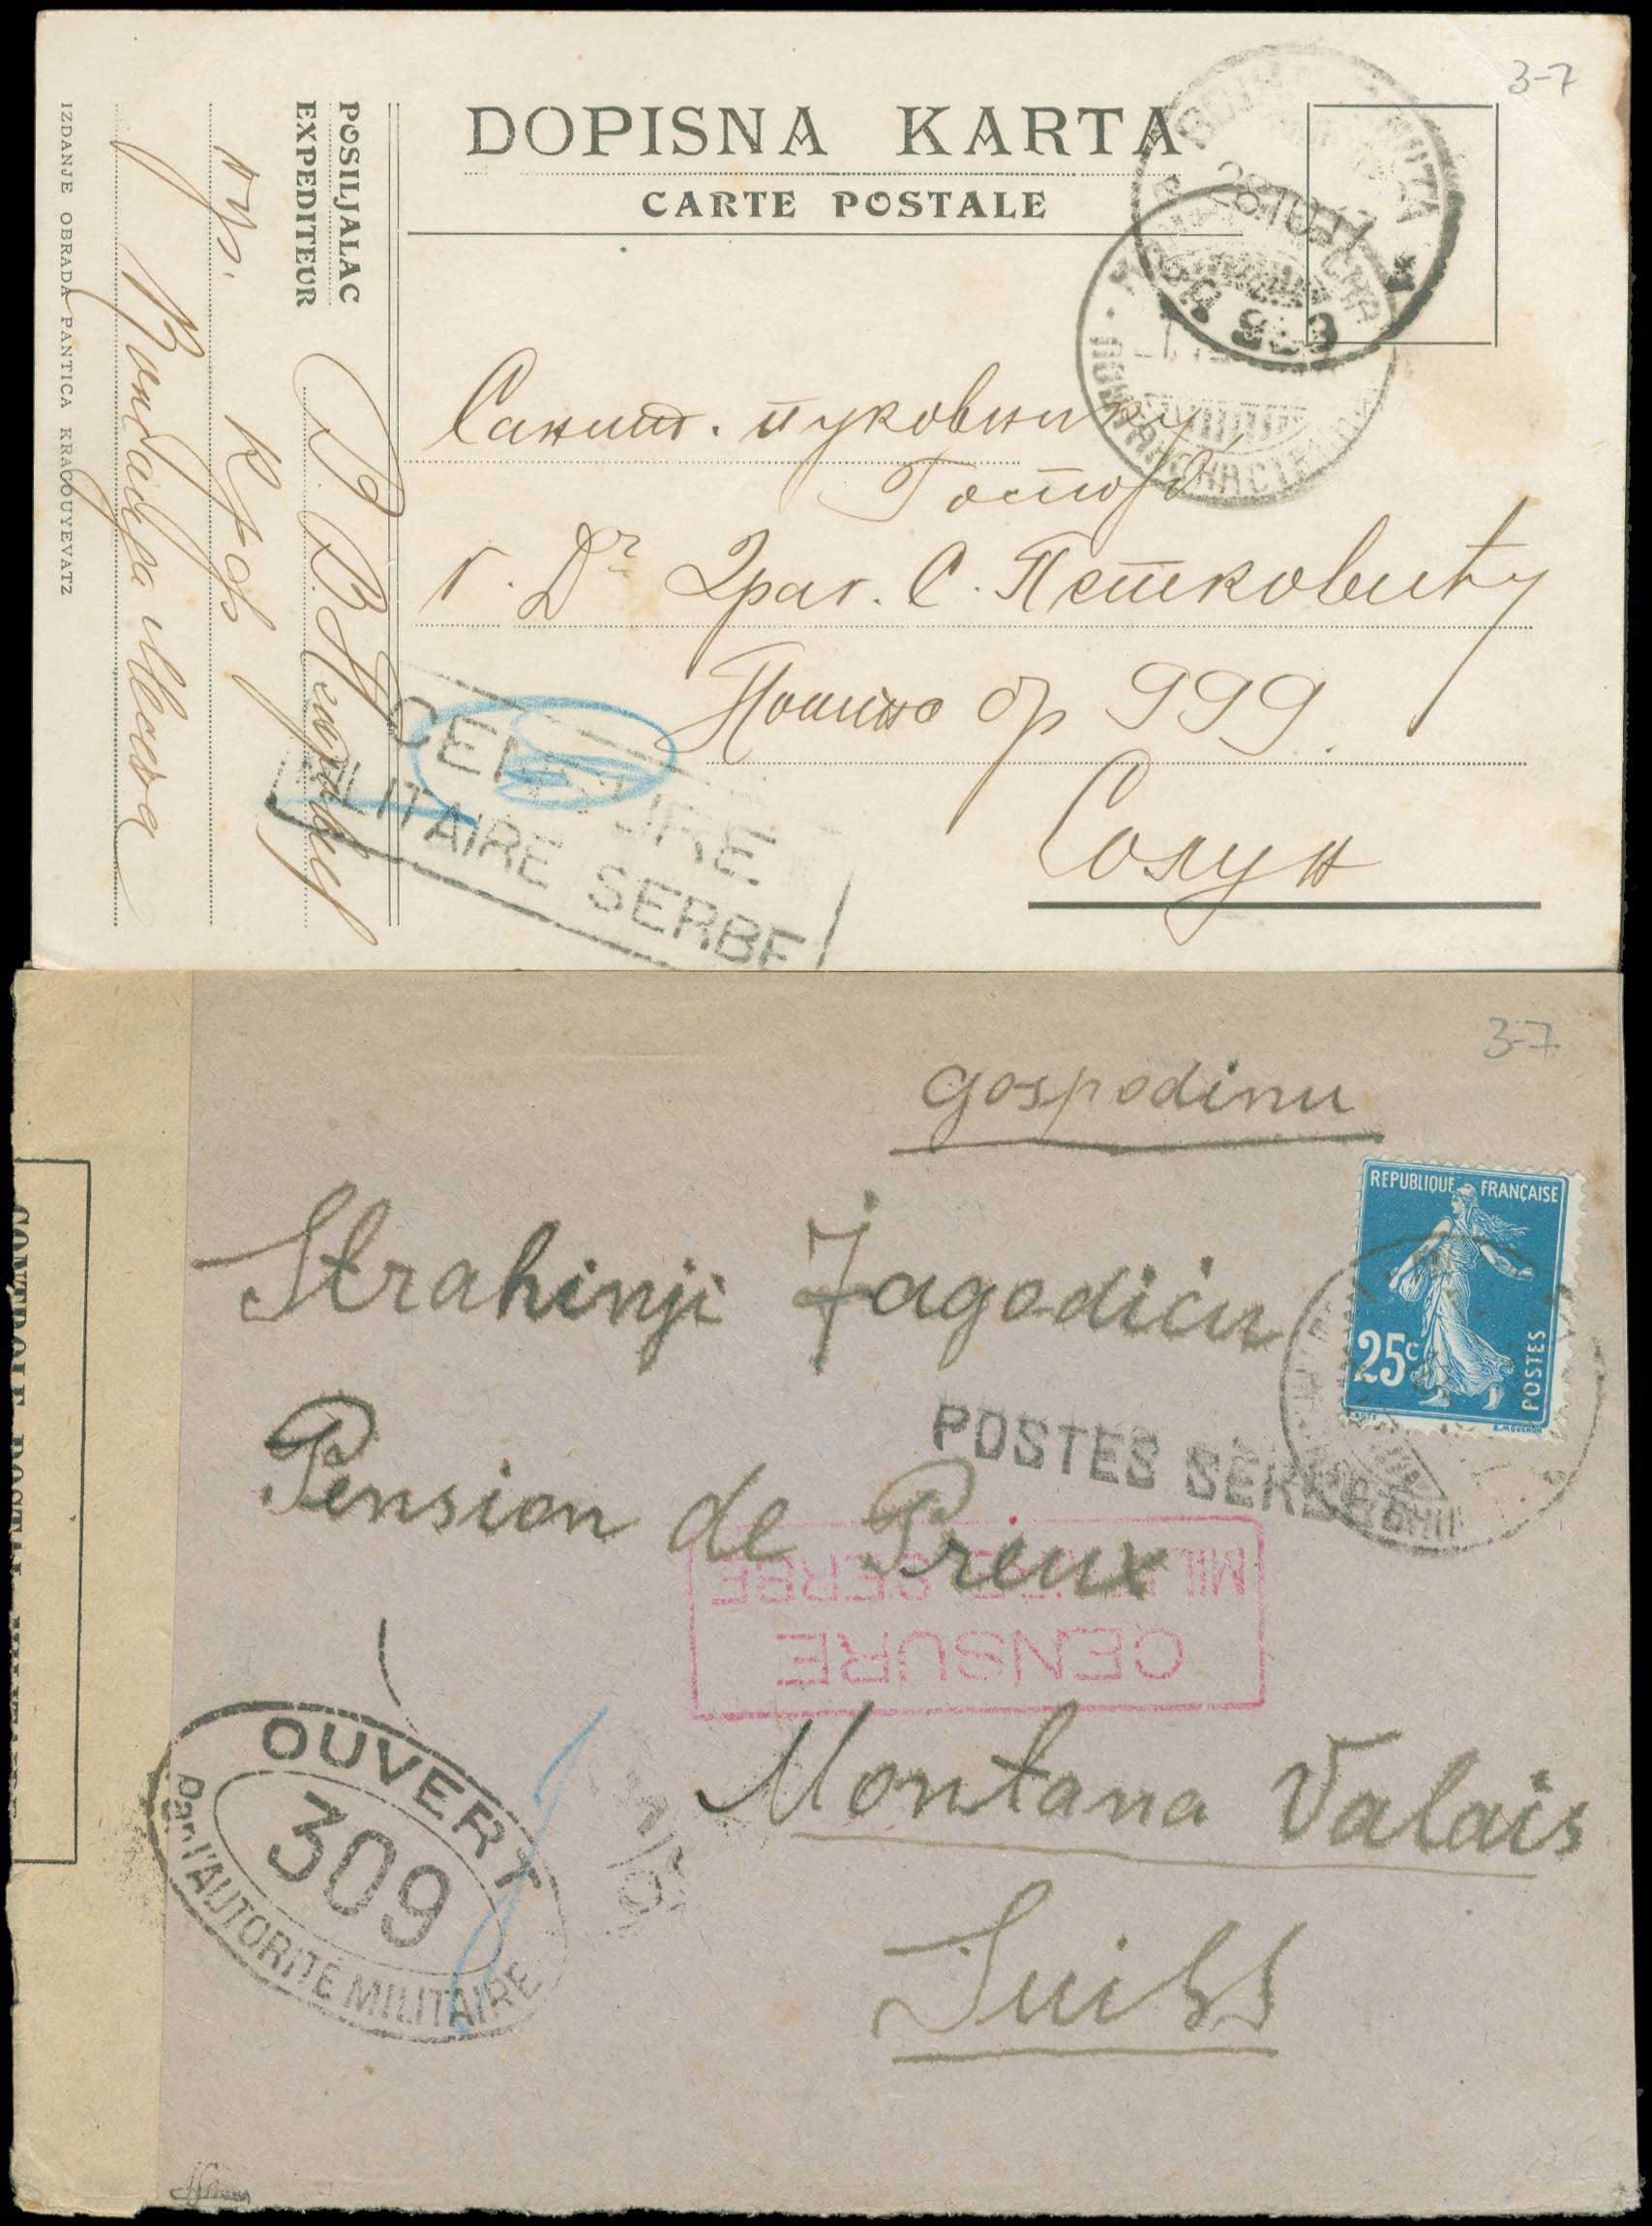 3-7
DOPISNA KARTA
CARTE POSTALE
28 10 17
999
POSILJALAC
EXPEDITEUR
IZDANJE OBRADA PANTICA KRAGOUYEVATZ
Санит. пуковнику
Господ
г. Dr Драг. С. Петковићу
Пошта бр 999
Солун
CENSURE
MILITAIRE SERBE
3-7
gospodinu
Strahinji Jagodiću
REPUBLIQUE FRANÇAISE
25c
POSTES
Pension de Preux
POSTES SERBES
CENSURE
MILITAIRE SERBE
Montana Valais
Suiss
OUVERT
309
Par l'AUTORITÉ MILITAIRE
CONTROLE POSTAL MILITAIRE